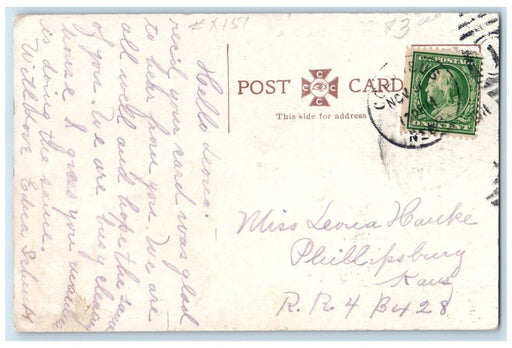 # X151
$3
Hello Leona:-
recid your card was glad
to hear from you. We are
all well and hope the same
of you. We are busy cleaning
house I guess you
is doing the same.
With love Edna
POST CARD
This side for address
C C C C
U.S. POSTAGE
ONE CENT
NOV
Miss Leona Hauke
Phillipsburg
Kans
R. R. 4 B 428